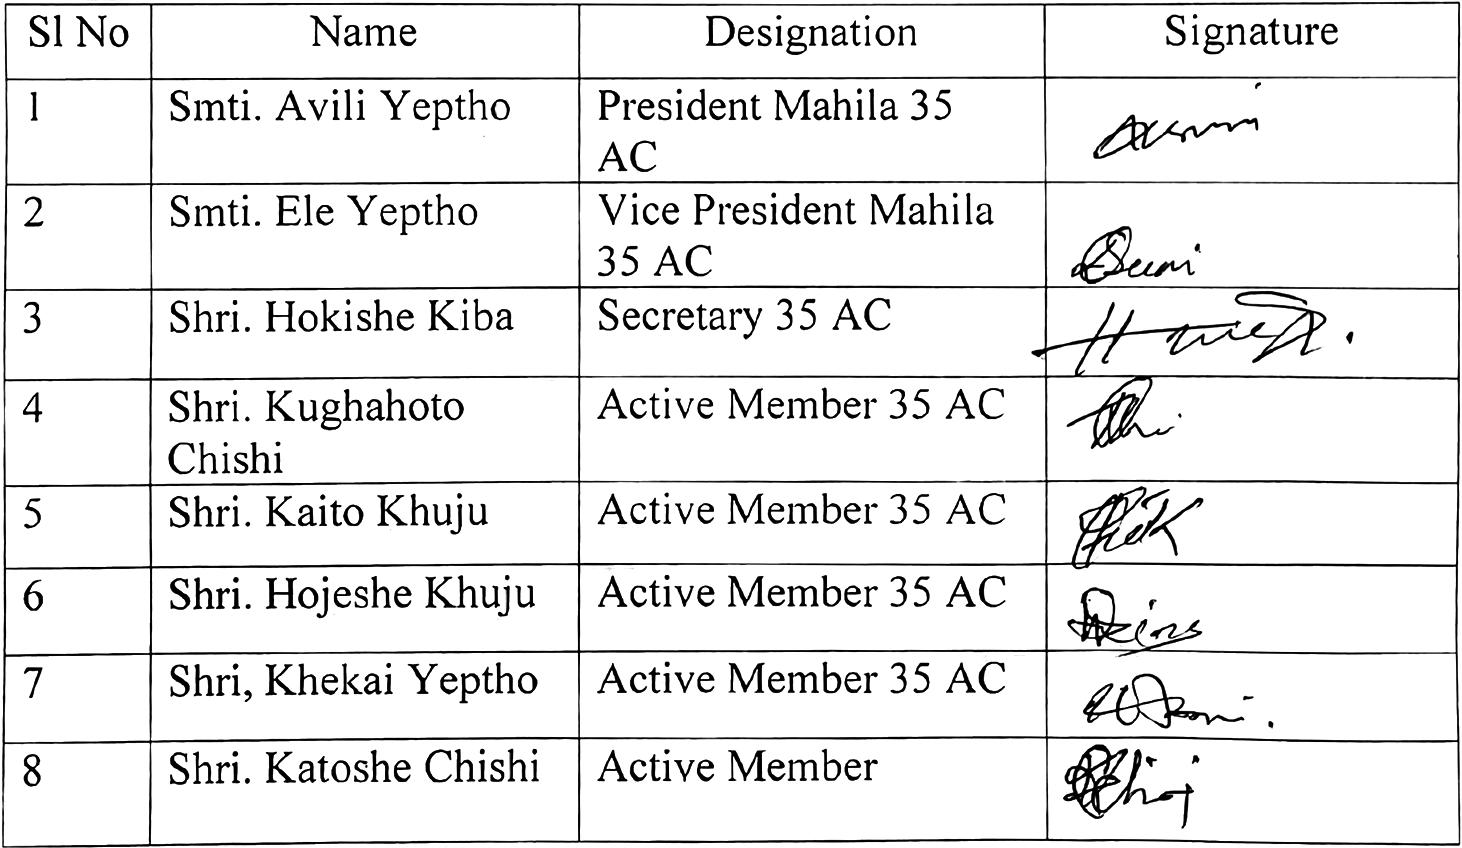 Sl No Name Designation Signature
1 Smti. Avili Yeptho President Mahila 35
AC
2 Smti. Ele Yeptho Vice President Mahila
35 AC
3 Shri. Hokishe Kiba Secretary 35 AC
4 Shri. Kughahoto Active Member 35 AC
Chishi
5 Shri. Kaito Khuju Active Member 35 AC
6 Shri. Hojeshe Khuju Active Member 35 AC
7 Shri, Khekai Yeptho Active Member 35 AC
8 Shri. Katoshe Chishi Active Member